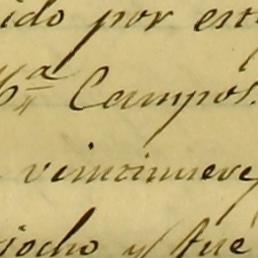 ido por est
6ª Campos.
veintinueve
iocho y fue